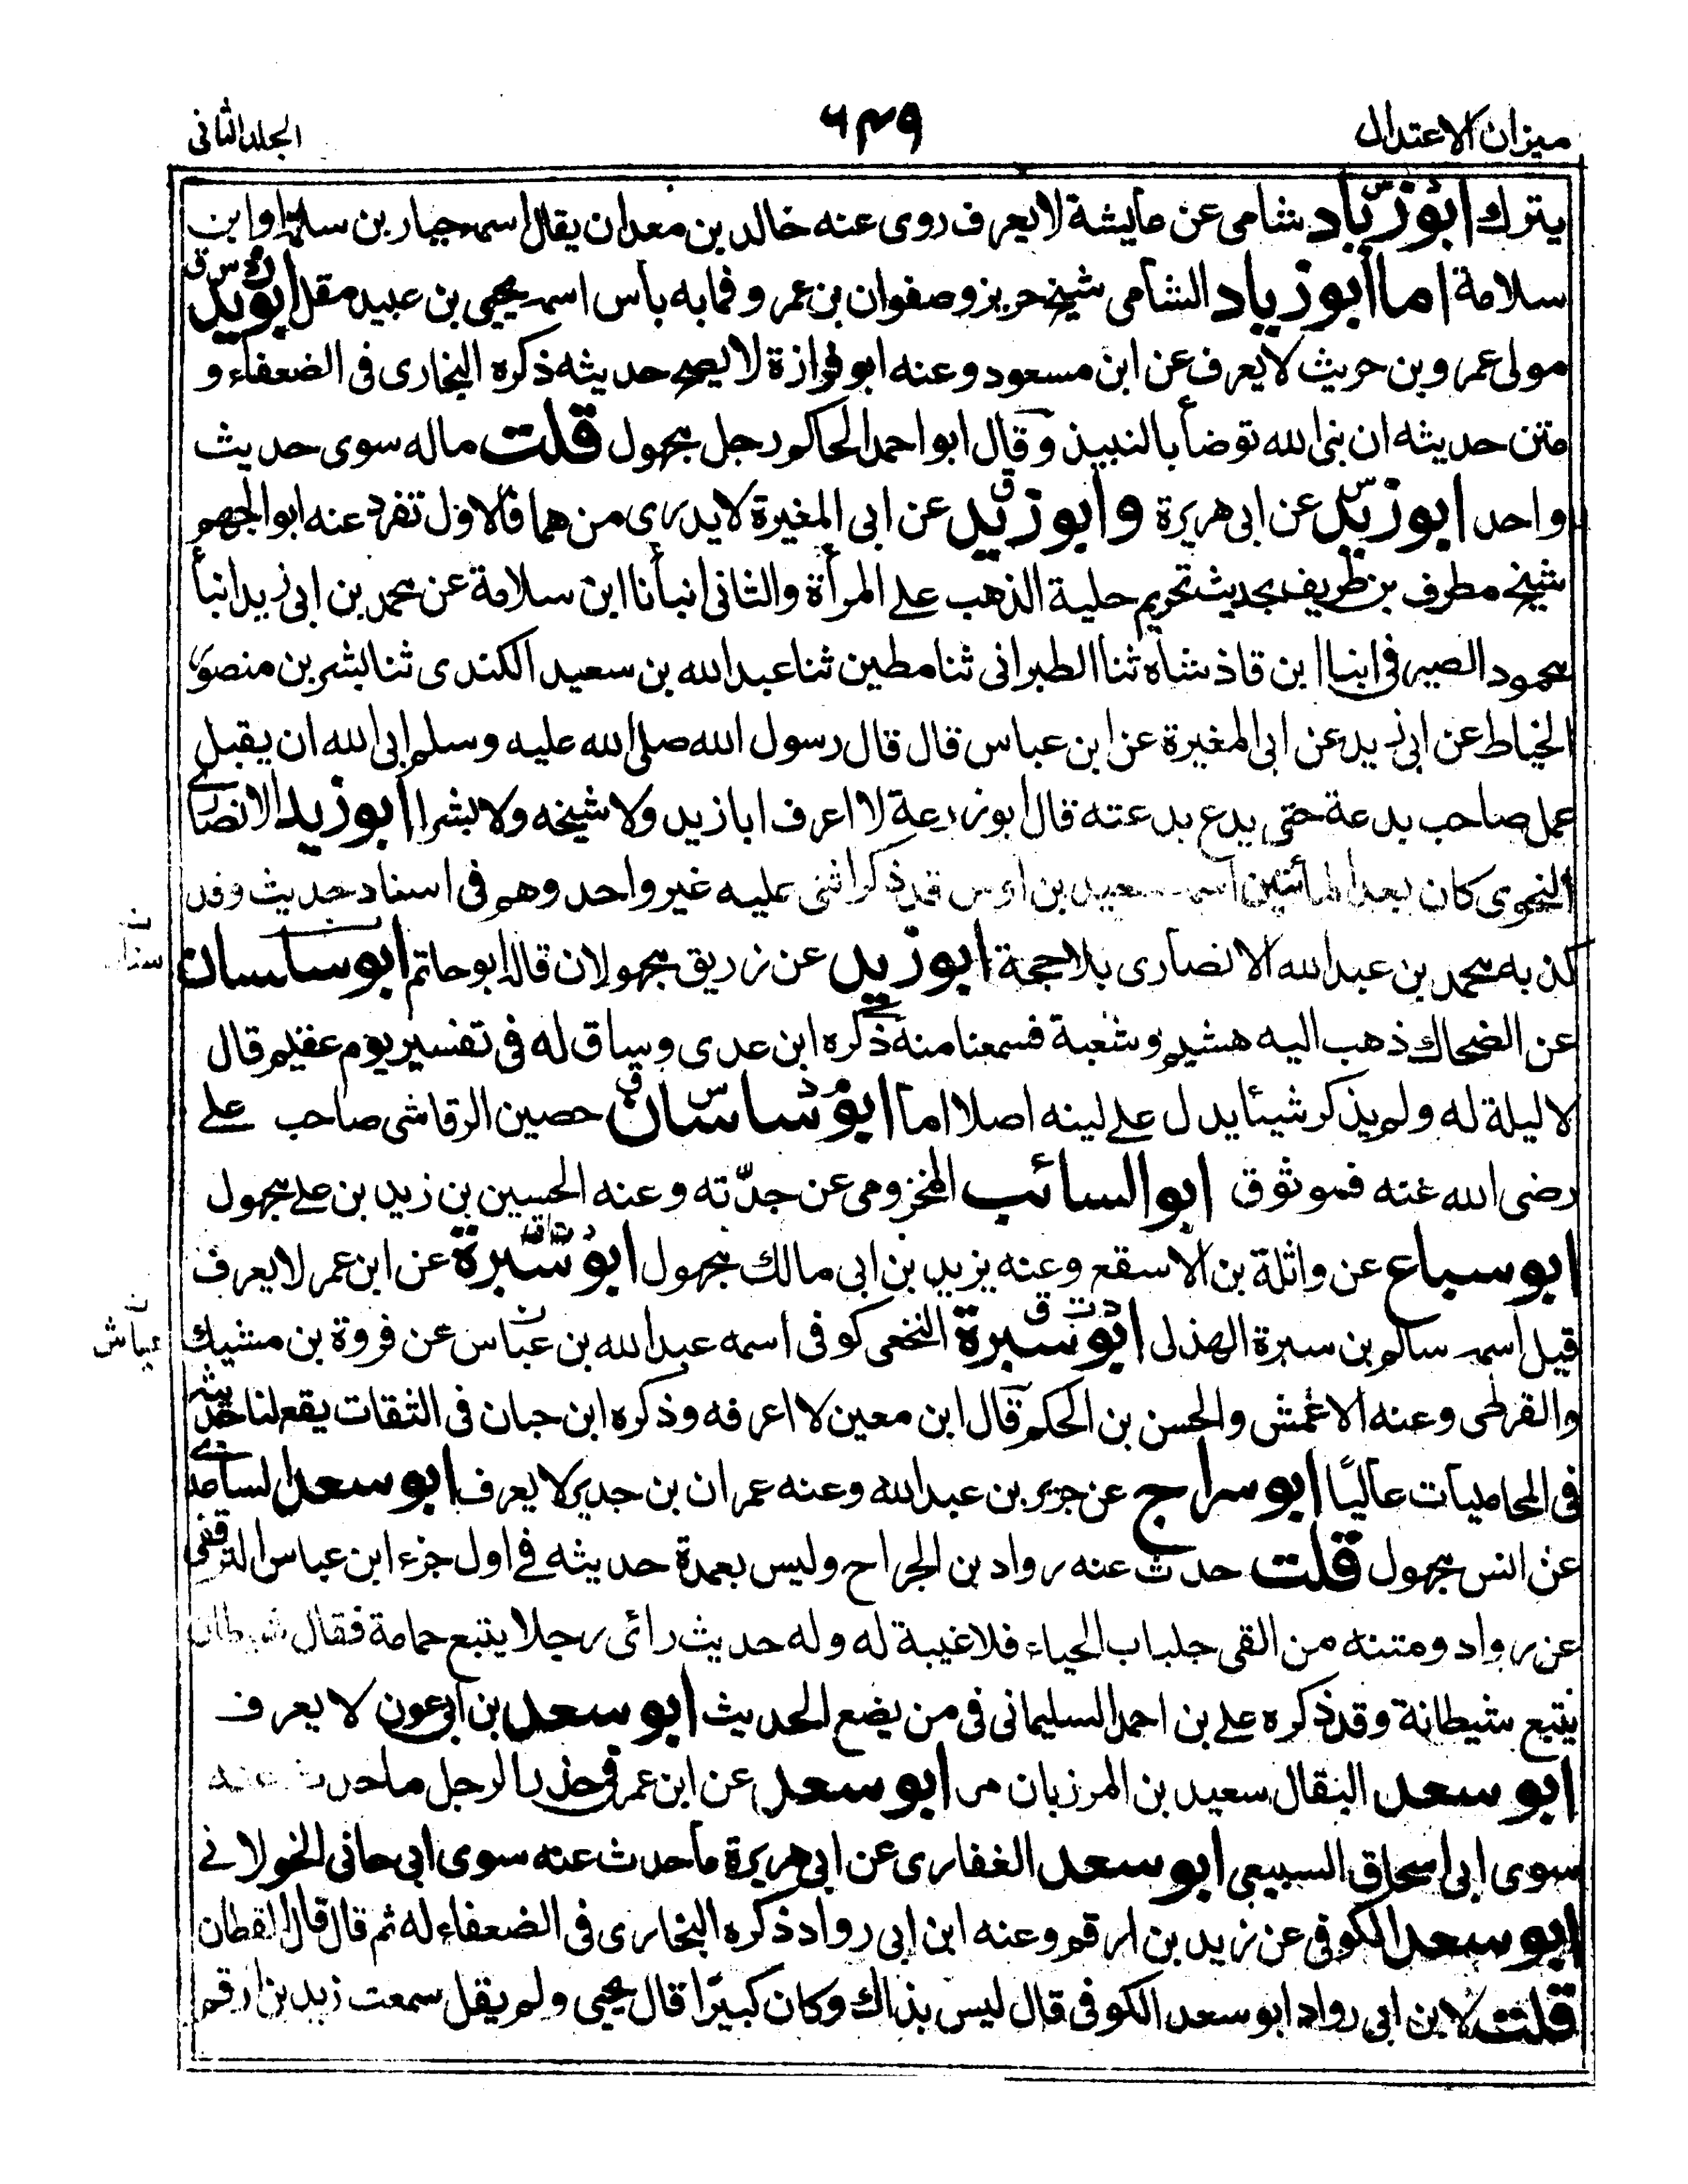 ميزان الاعتدال
٦٤٩
الجلد الثانی
يترك ابو زياد شامی عن عايشة لا يعرف روی عنه خالد بن معدان يقال اسمه خيار بن سلمة او ابن
سلامة اما ابو زياد الشامی شيخ حريز و صفوان بن عمرو فما به بأس اسمه يحيی بن عبيد مقل ابو زيد
مولی عمرو بن حريث لا يعرف عن ابن مسعود وعنه ابو فزارة لا يصح حديثه ذكره البخاری فی الضعفاء و
متن حديثه ان نبی الله توضأ بالنبيذ وقال ابو احمد الحاكم رجل مجهول قلت ماله سوی حديث
واحد ابو زيد عن ابی هريرة وابو زيد عن ابی المغيرة لا يدری من هما فالاول تفرد عنه ابو الجهم
شيخ مطرف بن طريف بحديث تحريم حلية الذهب علی المرأة والثانی انبأنا ابن سلامة عن محمد بن ابی زيد انبأ
محمود الصيرفی ابنا ابن قاذ شاه ثنا الطبرانی ثنا مطين ثنا عبد الله بن سعيد الكندی ثنا بشر بن منصور
الخياط عن ابی زيد عن ابی المغيرة عن ابن عباس قال قال رسول الله صلی الله عليه وسلم ابی الله ان يقبل
عمل صاحب بدعة حتی يدع بدعته قال ابو زرعة لا اعرف ابا زيد ولا شيخه ولا بشرا ابو زيد الانصاری
النحوی كان بعد المائتين اسمه سعيد بن اوس قد ذكر اثنی عليه غير واحد وهم فی اسناد حديث وقد
كذبه محمد بن عبد الله الانصاری بلا حجة ابو زيد عن زريق مجهولان قاله ابو حاتم ابو ساسان
عن الضحاك ذهب اليه هشيم وشعبة فسمعنا منه ذكره ابن عدی وساق له فی تفسير يوم عقيم قال
لا ليلة له ولم يذكر شيئا يدل علی لينه اصلا اما ابو ساسان حصين الرقاشی صاحب علی
رضی الله عنه فموثوق ابو السائب المخزومی عن جدّته وعنه الحسين بن زيد بن علی مجهول
ابو سباع عن واثلة بن الاسقع وعنه يزيد بن ابی مالك مجهول ابو سبرة عن ابن عمر لا يعرف
قيل اسمه سالم بن سبرة الهذلی ابو سبرة النخعی كوفی اسمه عبد الله بن عباس عن فروة بن مسيك
عياش
والقرظی وعنه الاعمش والحسن بن الحكم قال ابن معين لا اعرفه وذكره ابن حبان فی الثقات يقع لنا حديثه
فی المحامليات عاليًا ابو سراج عن جرير بن عبد الله وعنه عمران بن حدير لا يعرف ابو سعد الساعدی
عن انس مجهول قلت حدث عنه رواد بن الجراح وليس بعمدة حديثه فی اول جزء ابن عباس الترقفی
عن رواد ومتنه من القی جلباب الحياء فلا غيبة له وله حديث رائی رجلا يتبع حمامة فقال شيطان
يتبع شيطانة وقد ذكره علی بن احمد السليمانی فی من يضع الحديث ابو سعد بن ابی عون لا يعرف
ابو سعد البقال سعيد بن المرزبان مر ابو سعد عن ابن عمر فی حذر الرجل ما حدث عنه
سوی ابی اسحاق السبيعی ابو سعد الغفاری عن ابی هريرة ما حدث عنه سوی ابی هانی الخولانی
ابو سعد الكوفی عن زيد بن ارقم وعنه ابن ابی رواد ذكره البخاری فی الضعفاء له ثم قال قال القطان
قلت لابن ابی رواد ابو سعد الكوفی قال ليس بذاك وكان كبيرًا قال يحيی ولم يقل سمعت زيد بن ارقم